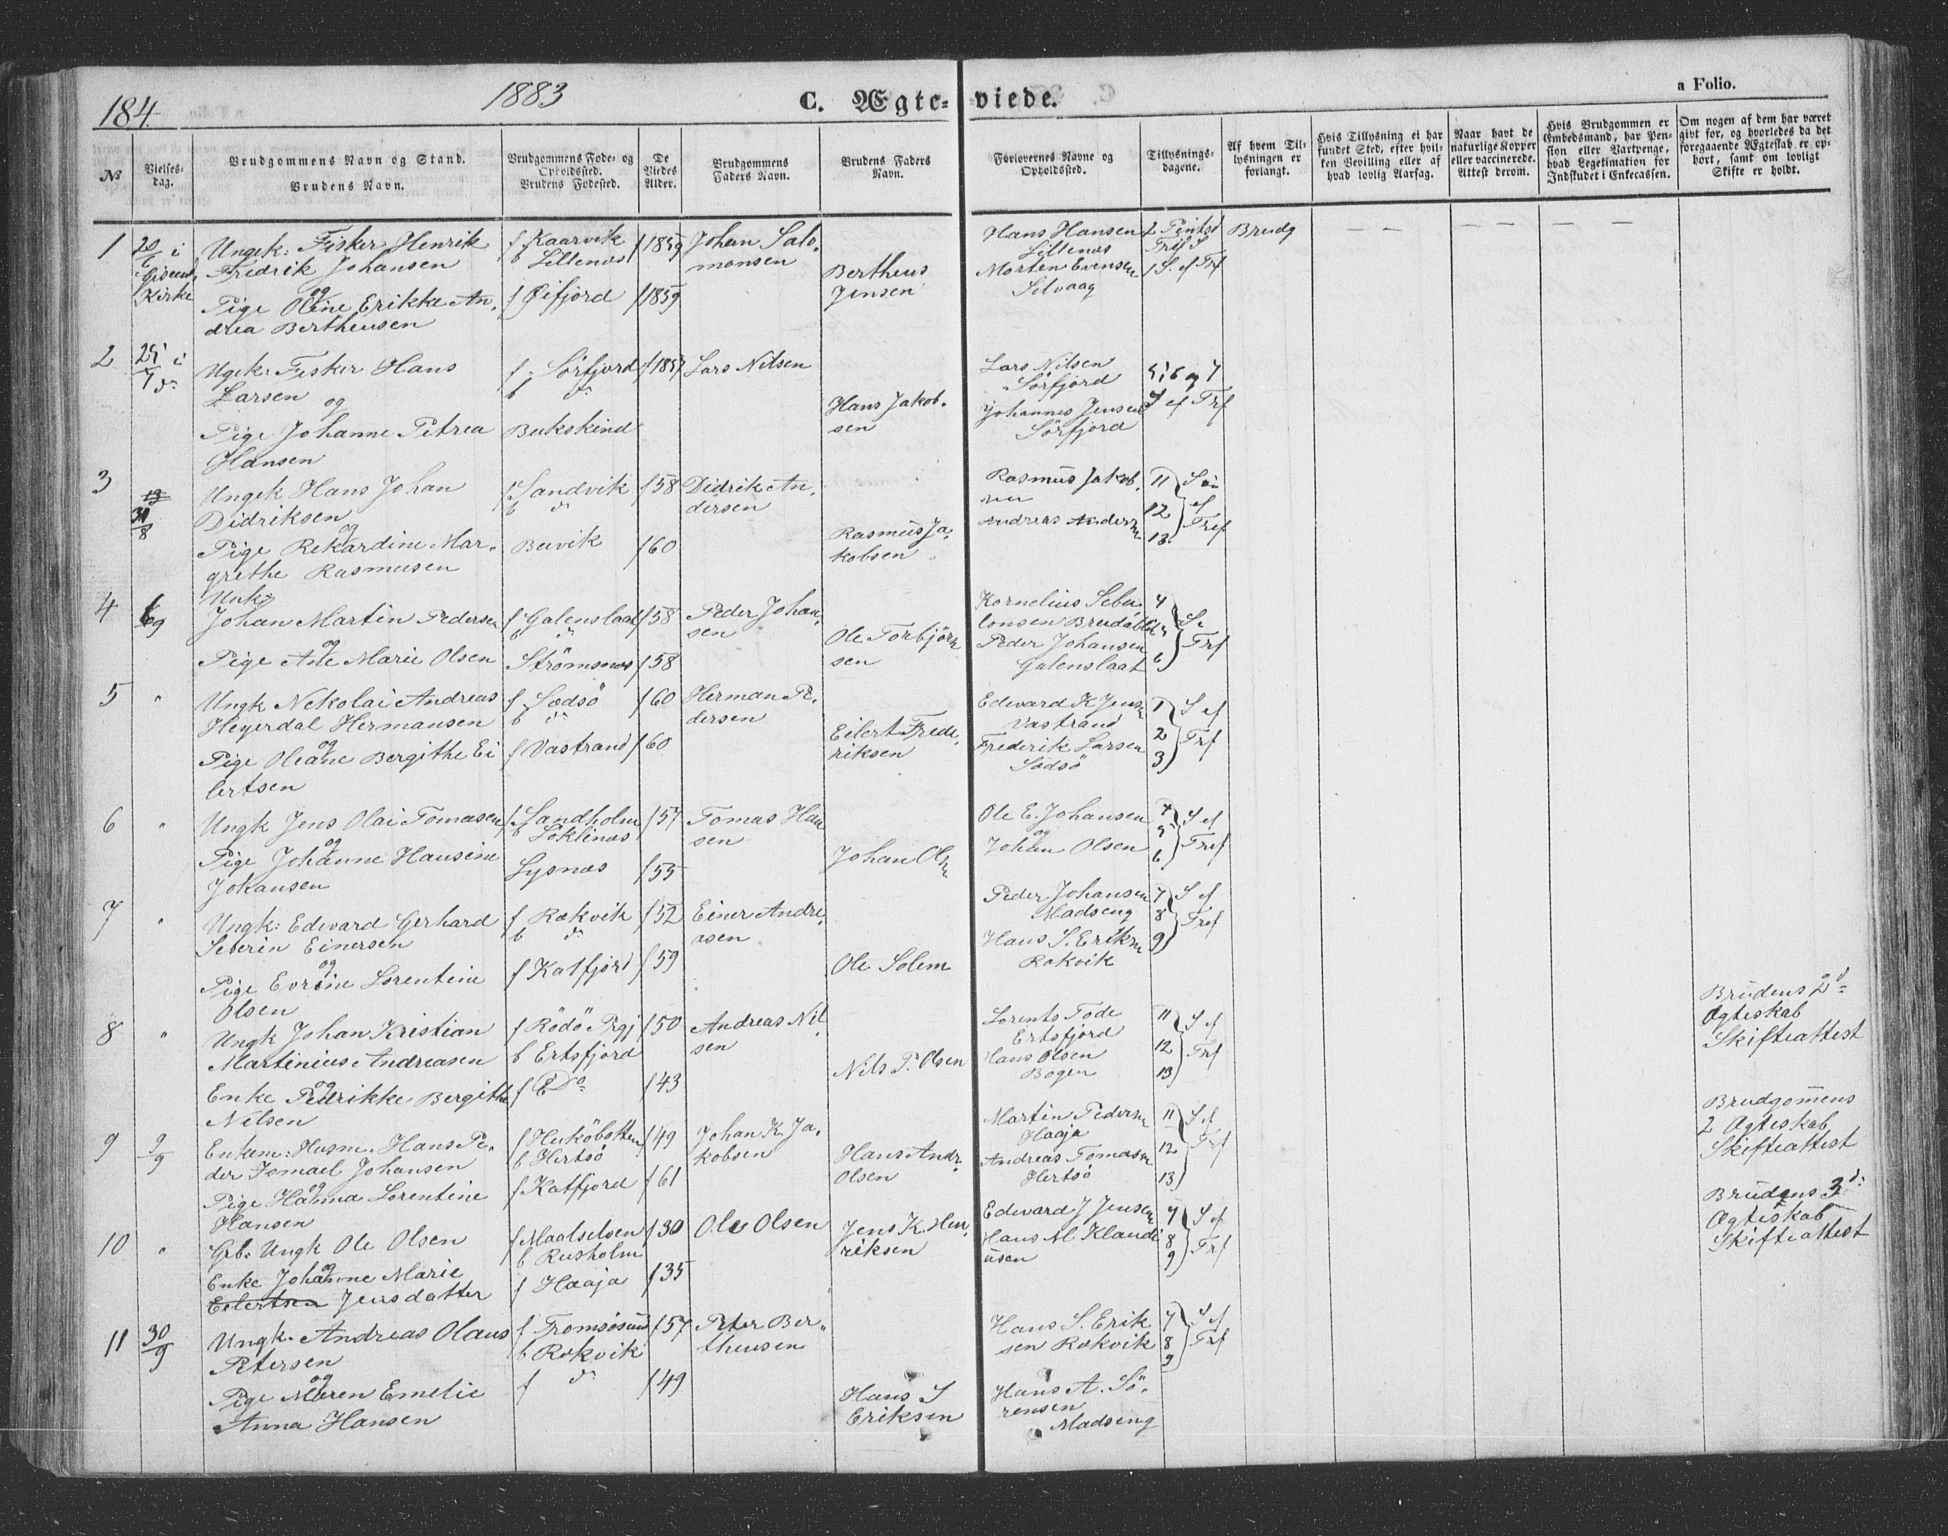 184
1883
C. Ægte-
viede.
a Folio.
№
Vielses-
dag.
Brudgommens Navn og Stand.
Brudens Navn.
Brudgommens Føde- og
Opholdssted.
Brudens Fødested.
De
Viedes
Alder.
Brudgommens
Faders Navn.
Brudens Faders
Navn.
Forlovernes Navne og
Opholdssted.
Tillysnings-
dagene.
Af hvem Til-
lysningen er
forlangt.
Hvis Tillysning ei har
fundet Sted, efter hvil-
ken Bevilling eller af
hvad lovlig Aarsag.
Naar havt de
naturlige Kopper
eller vaccinerede.
Attest derom.
Hvis Brudgommen er
Embedsmand, har Pen-
sion eller Vartpenge,
hvad Legetimation for
Indskudet i Enkecassen.
Om nogen af dem har været
givt for, og hvorledes da det
foregaaende Ægteskab er op-
hørt, samt om lovligt
Skifte er holdt.
1
i
Kirke
Ungk: Fisker Henrik
Fredrik Johansen
og
Pige Oline Erikke An-
drea Bertheusen
f Kaarvik
b Lillenes
f Øifjord
f 1859
f 1859
Johan Salo-
monsen
Bertheus
Jensen
Hans Hansen
Lillenes
Morten Evensen
Selvaag
Brudg
2
Ugek: Fisker Hans
Larsen og
Pige Johanne Petrea
Hansen
f Sörfjord
b do
Bukskind
f 1857
Lars Nilsen
Hans Jakob-
sen
Lars Nilsen
Sörfjord
Johannes Jensen
Sörfjord
5, 6 og 7
S ef Trf
3
31/8
Ungek Hans Johan
Didriksen
og
Pige Rekardine Mar-
grethe Rasmusen
f Sandvik
b do
Buvik
f 58
f 60
Didrik An-
dersen
Rasmus Ja-
kobsen
Rasmus Jakob-
sen
Andreas Andersen
11
12
13
S
ef
Tref
4
6/9
Unk:
Johan Martin Pedersen
og
Pige Ane Marie Olsen
f Galenslaat
b do
Strömsnes
f 58
f 58
Peder Johan-
sen
Ole Torbjörn
sen
Kornelius Sebu-
lonsen
Peder Johansen
Galenslaat
4
5
6
Trf
5
"
Ungk Nekolai Andreas
Heyerdal Hermansen
og
Pige Oleane Bergithe Ei
lertsen
f Sodsö
b do
f Vastrand
f 60
f 60
Herman Pe-
dersen
Eilert Frede-
riksen
Edevard K Jensen
Vastrand
Frederik Larsen
Sodsö
1
2
3
S ef
Trf
6
"
Ungk Jens Olai Tomasen
og
Pige Johanne Hansine
Johansen
f Sandholm
b
Lysnæs
f 57
f 55
Tomas Han
sen
Johan Olsen
Ole E. Johansen
og
Johan Olsen
4
5
6
S ef
Tref
7
"
Ungk: Edvard Gerhard
Seberin Einersen
og
Pige Evrine Lorentine
Olsen
f Rækvik
b do
f Katfjord
f 52
f 59
Einer Andre-
asen
Ole Solem
Peder Johansen
Madseng
Hans S. Eriksen
Rækvik
7
8
9
S ef
Tref
8
"
Ungk Johan Kristian
Martinius Andreasen
og
Enke Pedrikke Bergithe
Nilsen
f Rödö Pregj
b Ertsfjord
f Do
f 50
f 43
Andreas Nil-
sen
Nils P. Olsen
Lorents Tode
Ertsfjord
Hans Olsen
Bogen
11
12
13
S ef
Trf
Brudens 2d
Ægteskab
Skifteattest
9
9/9
Enkem: Husm. Hans Pe-
der Ismael Johansen
og
Pige Hanna Lorentine
Hansen
f
b Hertsö
f Katfjord
f 49
f 61
Johan K. Ja-
kobsen
Hans Andr.
Olsen
Martin Pedersen
Haaja
Andreas Tomasen
Hertsö
11
12
13
S ef
Trf
Brudgomens
2 Ægteskab
Skifteattest
10
"
Grb: Ungk Ole Olsen
og
Enke Johanne Marie
Eilertsen Jensdatter
f Maalselven
b Rusholm
f Haaja
f 30
f 35
Ole Olsen
Jens K. Hen-
riksen
Edevard J Jensen
Hans M. Klaudi
usen
7
8
9
S ef
Trf
Brudens 3d:
Ægteskab
Skifteattest
11
30/9
Ungk. Andreas Olaus
Petersen
og
Pige Maren Emelie
Anna Hansen
f Tromsösund
b Rækvik
f do
f 57
f 49
Peter Ber-
theusen
Hans S
Eriksen
Hans S. Erik
sen Rækvik
Hans A. Sö-
rensen
Madseng
7
8
9
S ef
Trf